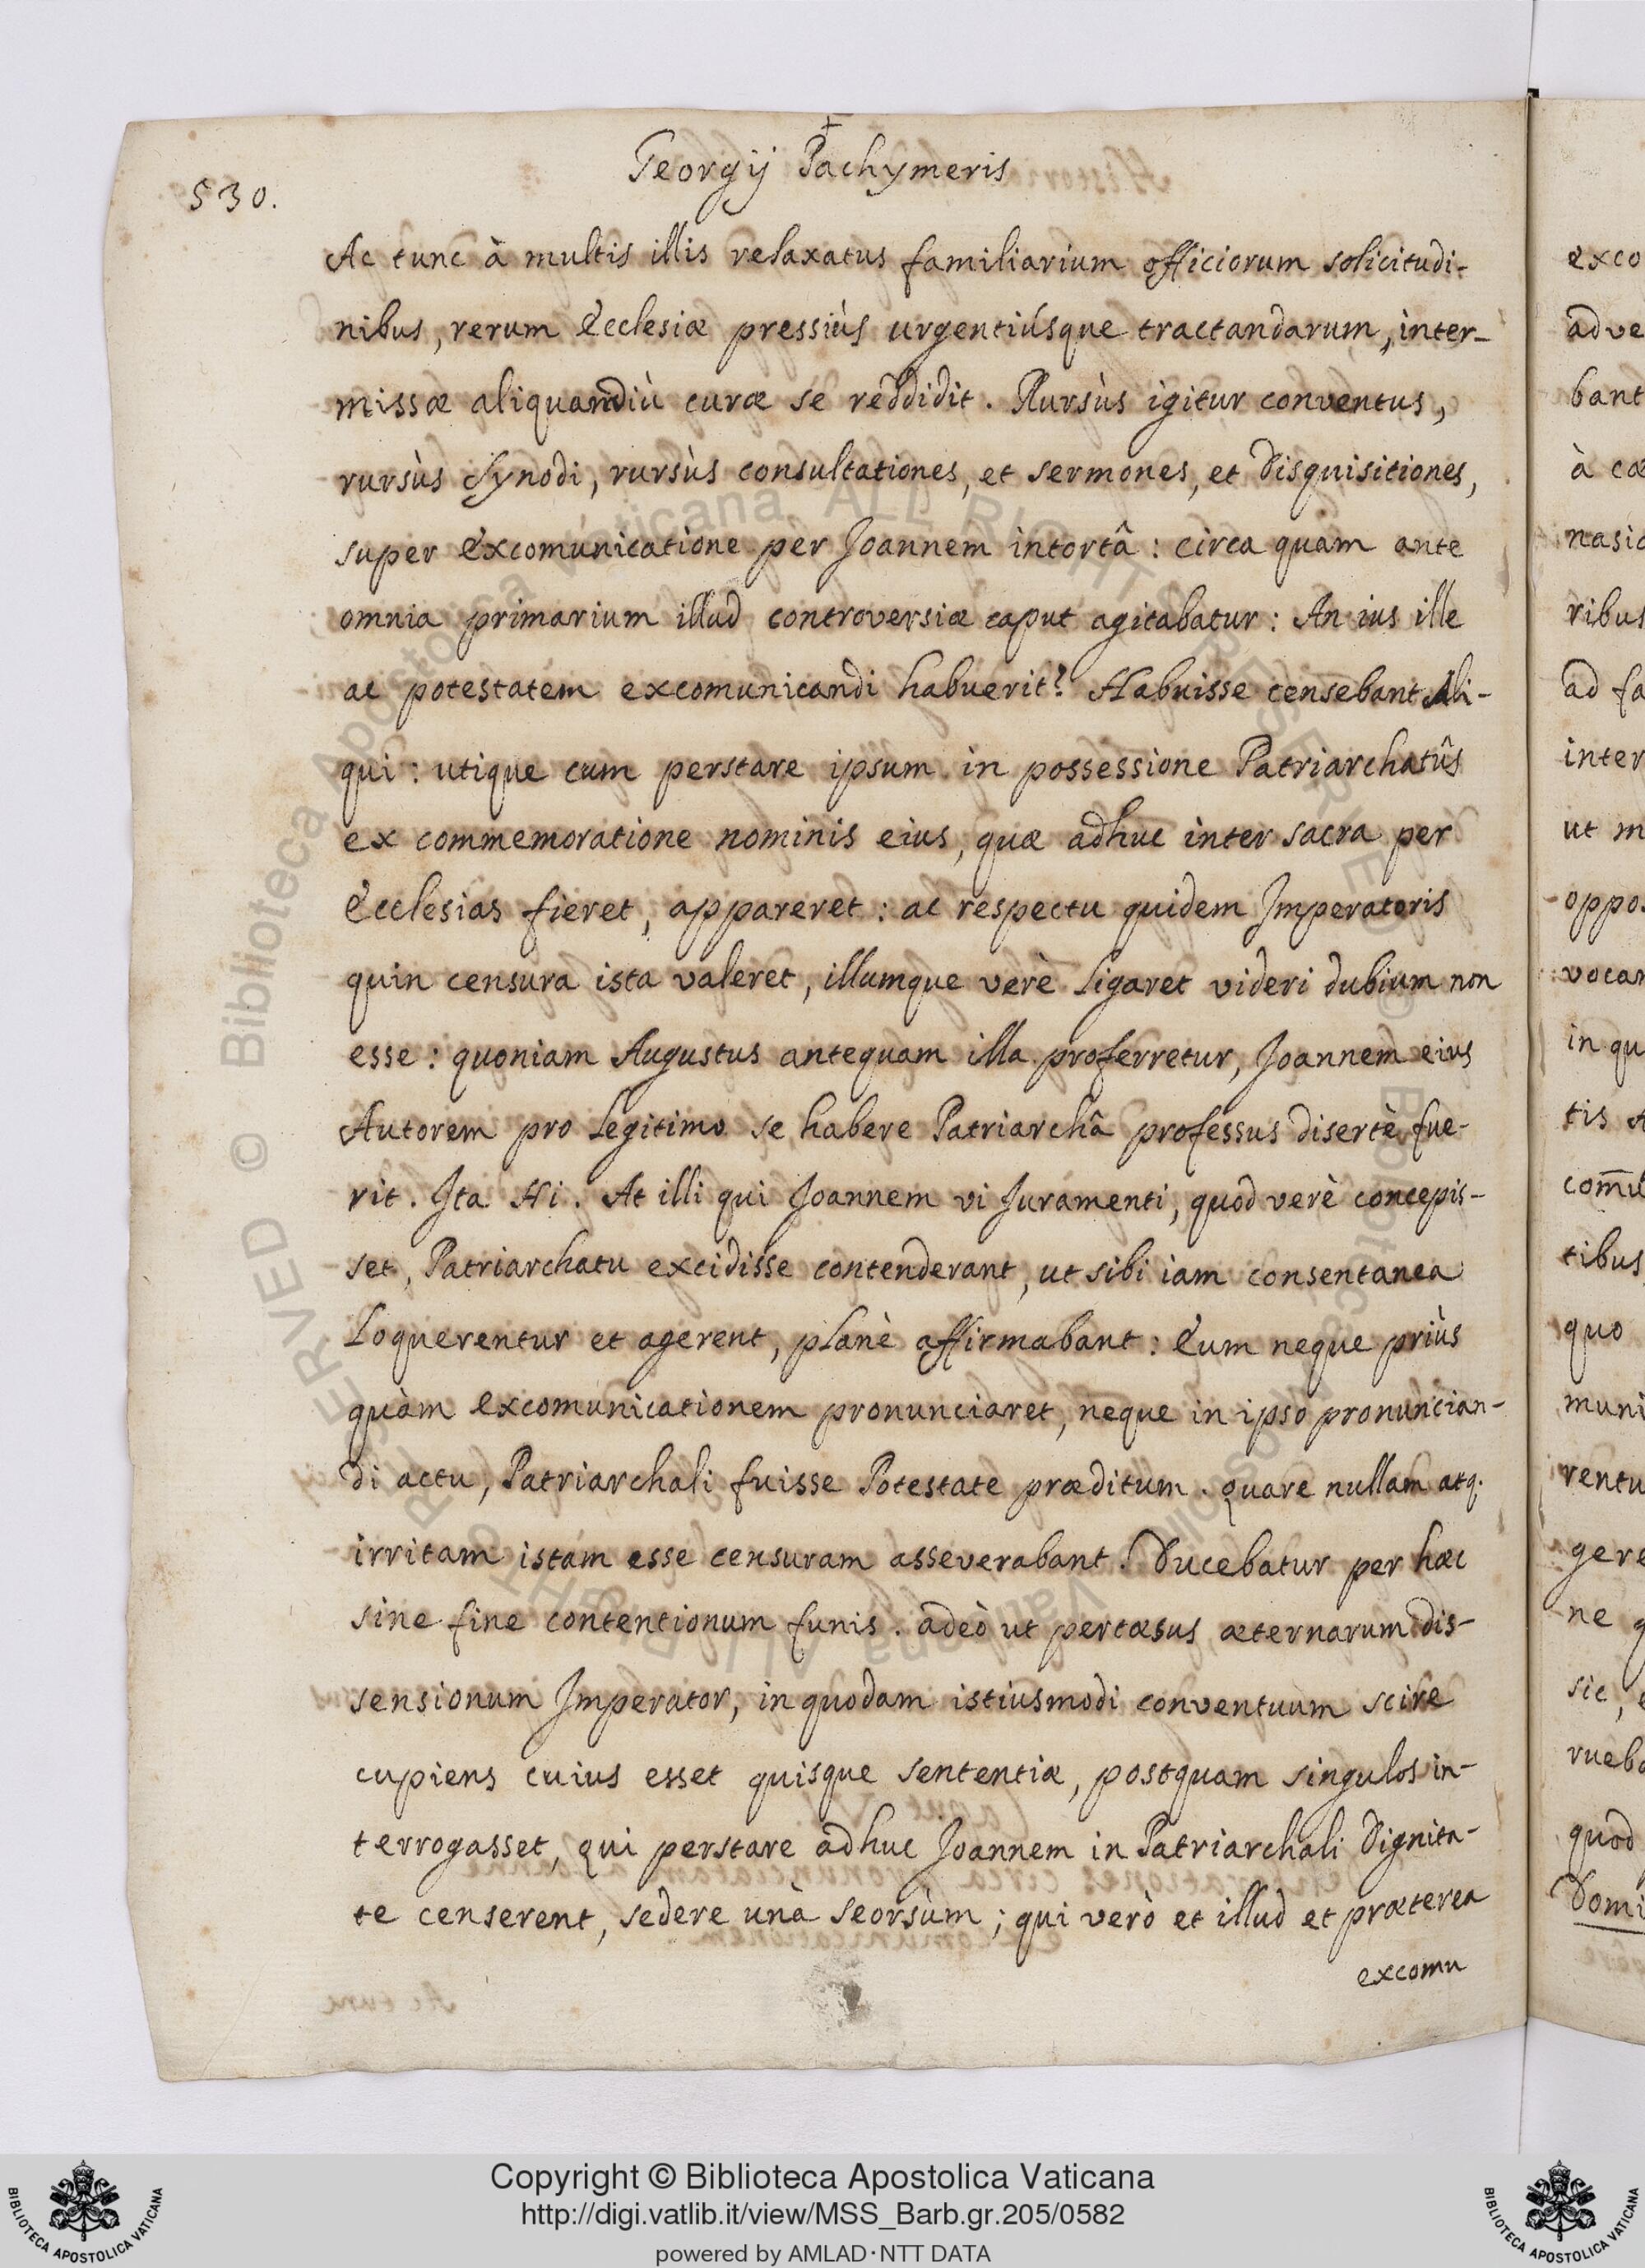 530.
Georgij Pachymeris
Ac tunc à multis illis relaxatus familiarium officiorum solicitudi-
nibus, rerum Ecclesiæ pressiùs urgentiúsque tractandarum, inter-
missæ aliquandiù curæ se reddidit. Rursùs igitur conventus,
rursùs Synodi, rursùs consultationes, et sermones, et Disquisitiones,
super Excomunicatione per Joannem intortâ: circa quam ante
omnia primarium illud controversiæ caput agitabatur: An ius ille
ac potestatem excomunicandi habuerit? Habuisse censebant Ali-
qui: utique cum perstare ipsum in possessione Patriarchatûs
ex commemoratione nominis eius, quæ adhuc inter sacra per
Ecclesias fieret, appareret: ac respectu quidem Imperatoris
quin censura ista valeret, illumque verè Ligaret videri dubium non
esse: quoniam Augustus antequam illa proferretur, Joannem eius
Autorem pro Legitimo se habere Patriarchâ professus disertè fue-
rit. Ita Hi. At illi qui Joannem vi Juramenti, quod verè concepis-
set, Patriarchatu excidisse contenderant, ut sibi iam consentanea
Loquerentur et agerent, planè affirmabant: Eum neque priùs
quàm Excomunicationem pronunciaret, neque in ipso pronuncian-
di actu, Patriarchali fuisse Potestate præditum. quare nullam atq.
irritam istam esse censuram asseverabant. Ducebatur per hæc
sine fine contentionum funis. adeò ut pertæsus æternarum dis-
sensionum Imperator, in quodam istiusmodi conventuum scire
cupiens cuius esset quisque sententiæ, postquam singulos in-
terrogasset, qui perstare adhuc Joannem in Patriarchali Dignita-
te censerent, sedere unà seorsùm; qui verò et illud et præterea
excomu
exco
adve
bant
à cæ
nasic
ribus
ad fa
inter
ut m
oppos
vocan
in qu
tis A
com̄u
tibus
quo
muni
rentu
gere
ne q
sic, e
rueba
quod
Domi
© Biblioteca Apostolica Vaticana ALL RIGHTS RESERVED © Biblioteca Apostolica Vaticana ALL RIGHTS RESERVED
Copyright © Biblioteca Apostolica Vaticana
http://digi.vatlib.it/view/MSS_Barb.gr.205/0582
powered by AMLAD·NTT DATA
BIBLIOTECA APOSTOLICA VATICANA
BIBLIOTECA APOSTOLICA VATICANA